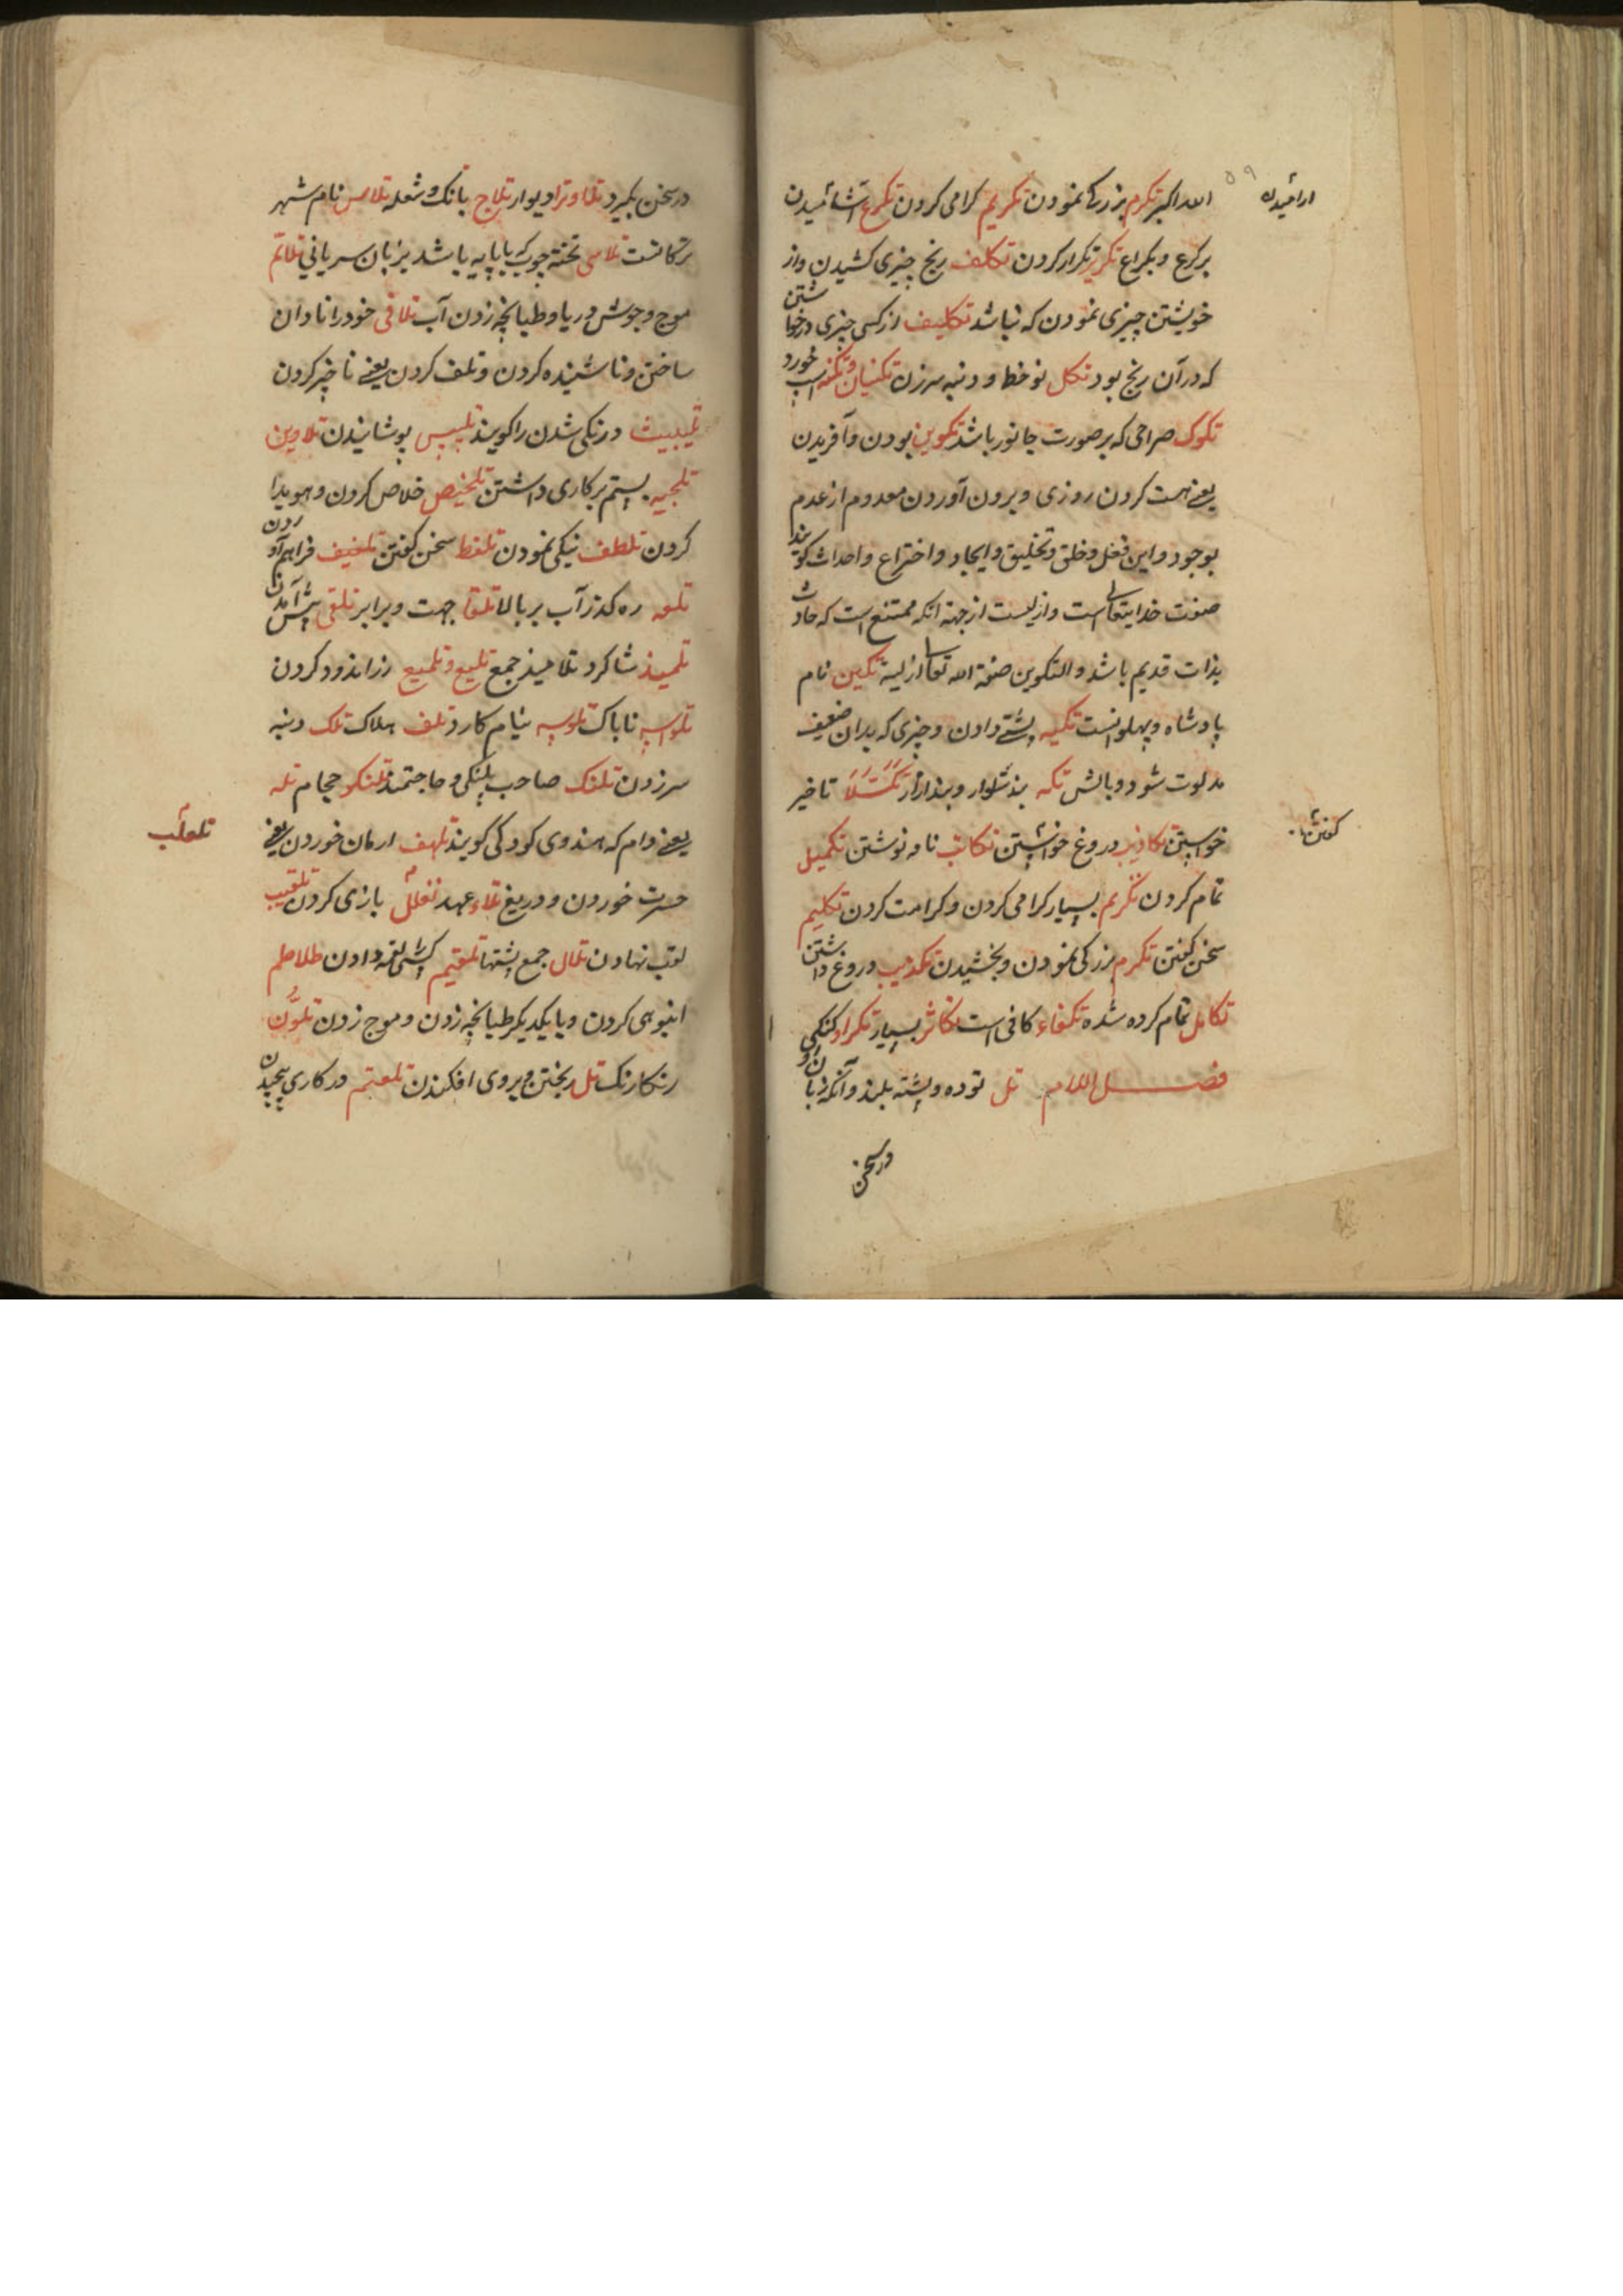 الله اکبر تکرم بزرگی نمودن تکریم گرامی کردن تکرع آشامیدن
۵۹
برکرع و بکراع تکریر تکرار کردن تکلف رنج چیزی کشیدن و از
خویشتن چیزی نمودن که نباشد تکلیف از کسی چیزی درخواستن
که در آن رنج بود تکل نوخط و دنبه سرزن
تکوک صراحی که بر صورت جانور باشد تکوین بودن و آفریدن
یعنی هست کردن روزی و برون آوردن معدوم از عدم
بوجود و این فعل و خلق و تخلیق و ایجاد و اختراع و احداث گویند
صفت خدایتعالی است و ازلیست از جهة آنکه ممتنع است که حادث
بذات قدیم باشد و التکوین صفة الله تعالی ازلیة تکین نام
پادشاه و پهلوانست تکیه پشتی دادن و چیزی که بدان ضعیف
شود و بالش تکه بند شلوار و بند ازار تاخیر
تکاذیب دروغ تکاتب نامه نوشتن تکمیل
تمام کردن تکریم بسیار گرامی کردن و کرامت کردن تکلیم
سخن گفتن تکرم بزرگی نمودن و بخشیدن تکذیب دروغ داشتن
تکامل تمام کرده شده تکفاء کافی است تکاثر بسیار تکراو کنکی
فصل اللام تل توده و پشته بلند و آنکه زبان او
در سخن
در سخن بگیرد تلا و ترا دیوار تلاج بانک و شعله تلاس نام شهر
ترکانست تلاسی تخته چوب که با پایه باشد بزبان سریانی تلاتم
موج و جوش دریا و طپانچه زدن آب تلافی خود را نادان
ساختن و ناشینده کردن و تلف کردن یعنی ناچیز کردن
درنکی شدن را گویند تلبیس پوشانیدن تلاوین
تلجیه بستم بر کاری داشتن تلخیص خلاص کردن و هویدا
کردن تلطف نیکی نمودن تلفظ سخن گفتن تلفیف فراهم آوردن
تلعه ره گذر آب بر بالا تلقا جهت و برابر تلقی پیش آمدن
تلمیذ شاگرد تلامیذ جمع تلیع و تلمیع زراندود کردن
تلواسه ناباک تلوسه نیام کارد تلف هلاک تلک دنبه
سرزدن تلنک صاحب پلنکی و حاجتمند تلنکو حجام تله
یعنی دام که هندوی کودکی گویند تلهف ارمان خوردن یعنی
تلعاب
حسرت خوردن و دریغ تلاء عهد بازی کردن تلقیب
لقب نهادن تلال جمع پشتها تلقیم لقمه دادن طلاطم
انبوهی کردن و با یکدیکر طپانچه زدن و موج زدن تلون
رنکارنک تل ریختن و بروی افکندن تلعثم در کاری پیچیدن